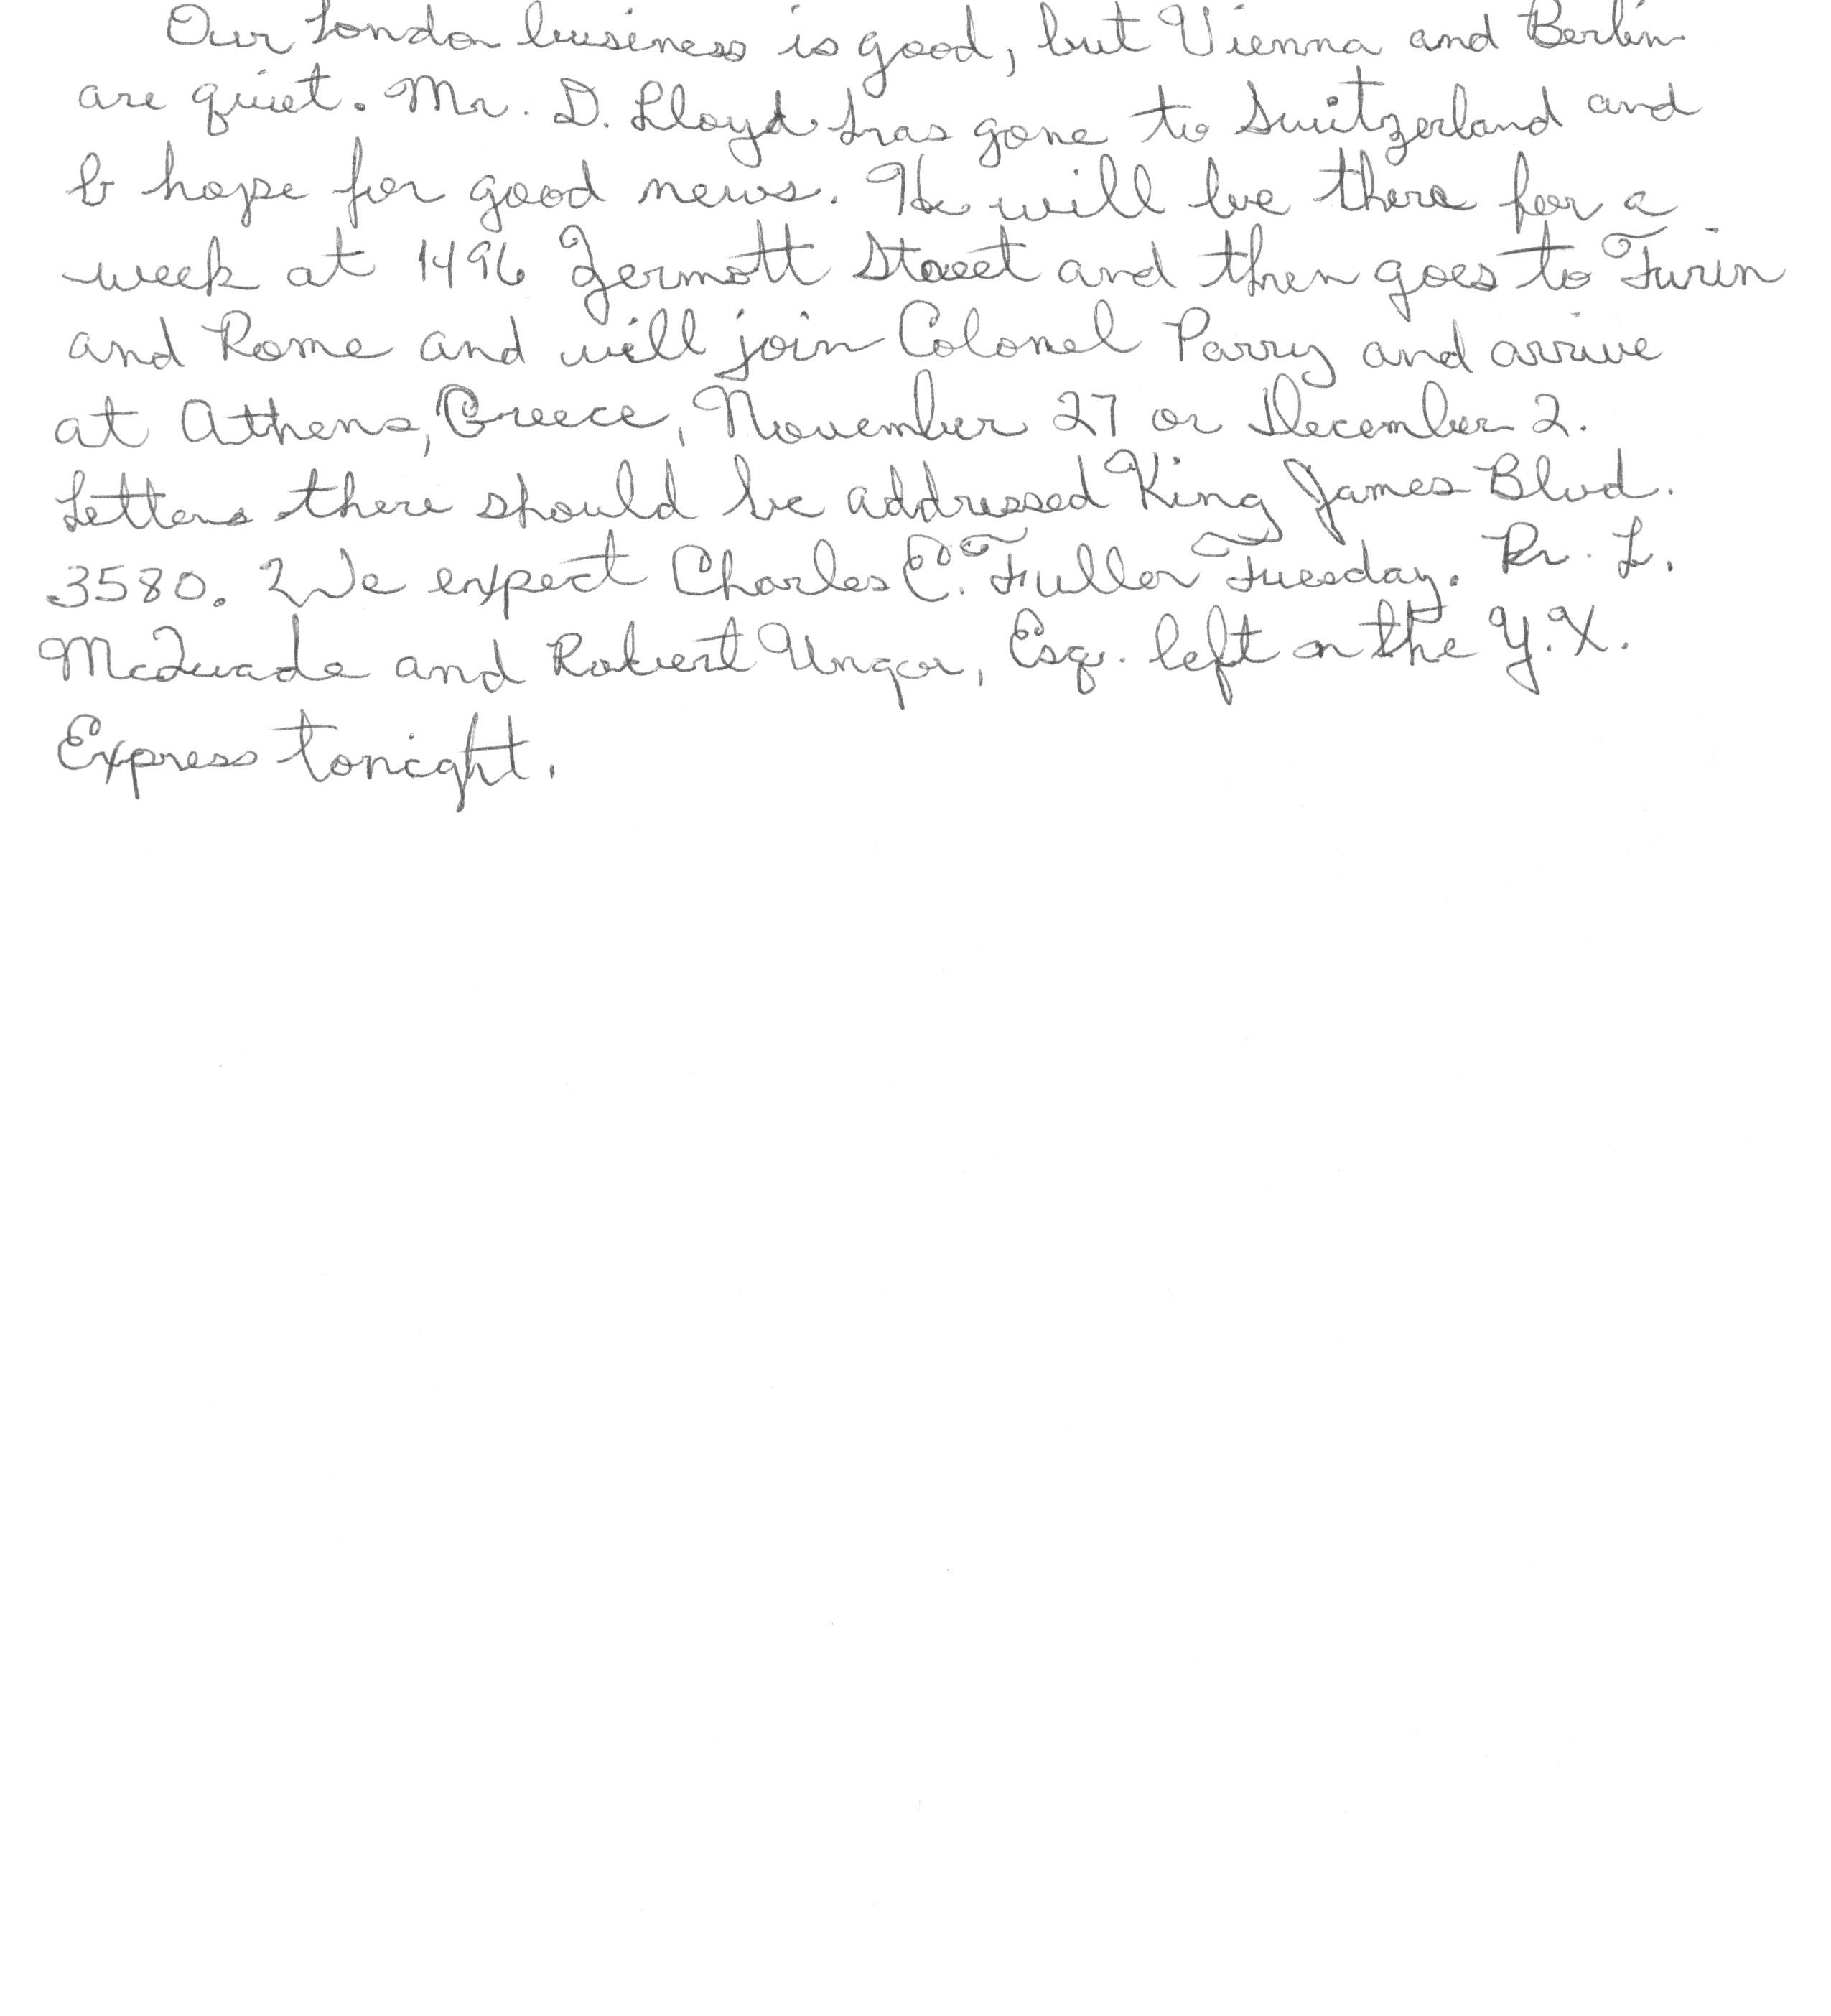 Our London business is good, but Vienna and Berlin
are quiet. Mr. D. Lloyd has gone to Switzerland and
I hope for good news. He will be there for a
week at 1496 Zermott Street and then goes to Turin
and Rome and will join Colonel Parry and arrive
at Athens, Greece, November 27 or December 2.
Letters there should be addressed King James Blvd.
3580. We expect Charles E. Fuller Tuesday. Dr. L.
McQuade and Robert Unger, Esq. left on the Y.X.
Express tonight.